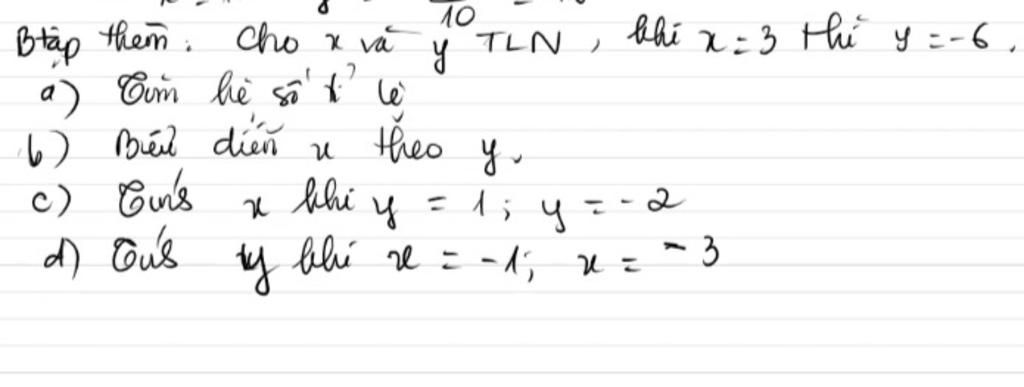 10
Btập thêm: Cho x và y TLN, khi x = 3 thì y = -6.
a) Tìm hệ số tỉ lệ
b) Biểu diễn x theo y.
c) Tính x khi y = 1; y = -2
d) Tính y khi x = -1; x = -3